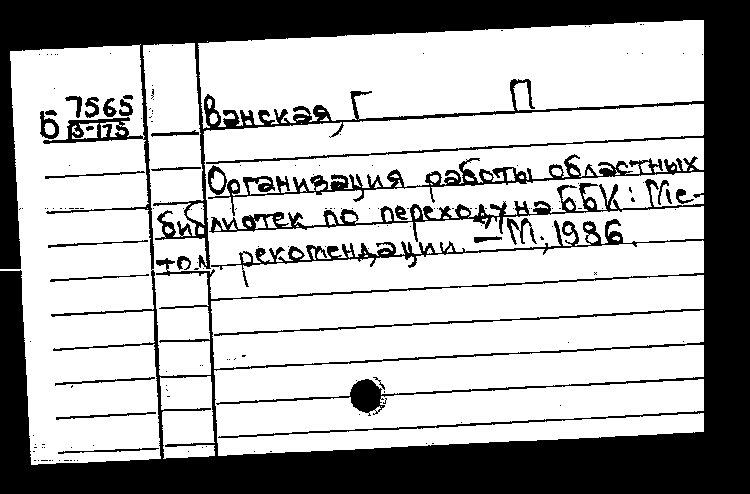 Б 7565
В-175
Ванская, Г П
Организация работы областных
библиотек по переходу на ББК: Ме-
тод. рекомендации. — М., 1986.